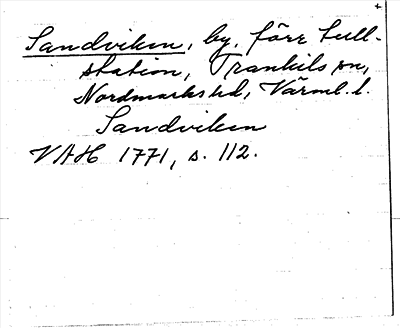 Sandviken, by, förr tull-
station, Trankils sn,
Nordmarks hd, Värml. l.
Sandviken
VAH 1771, s. 112.